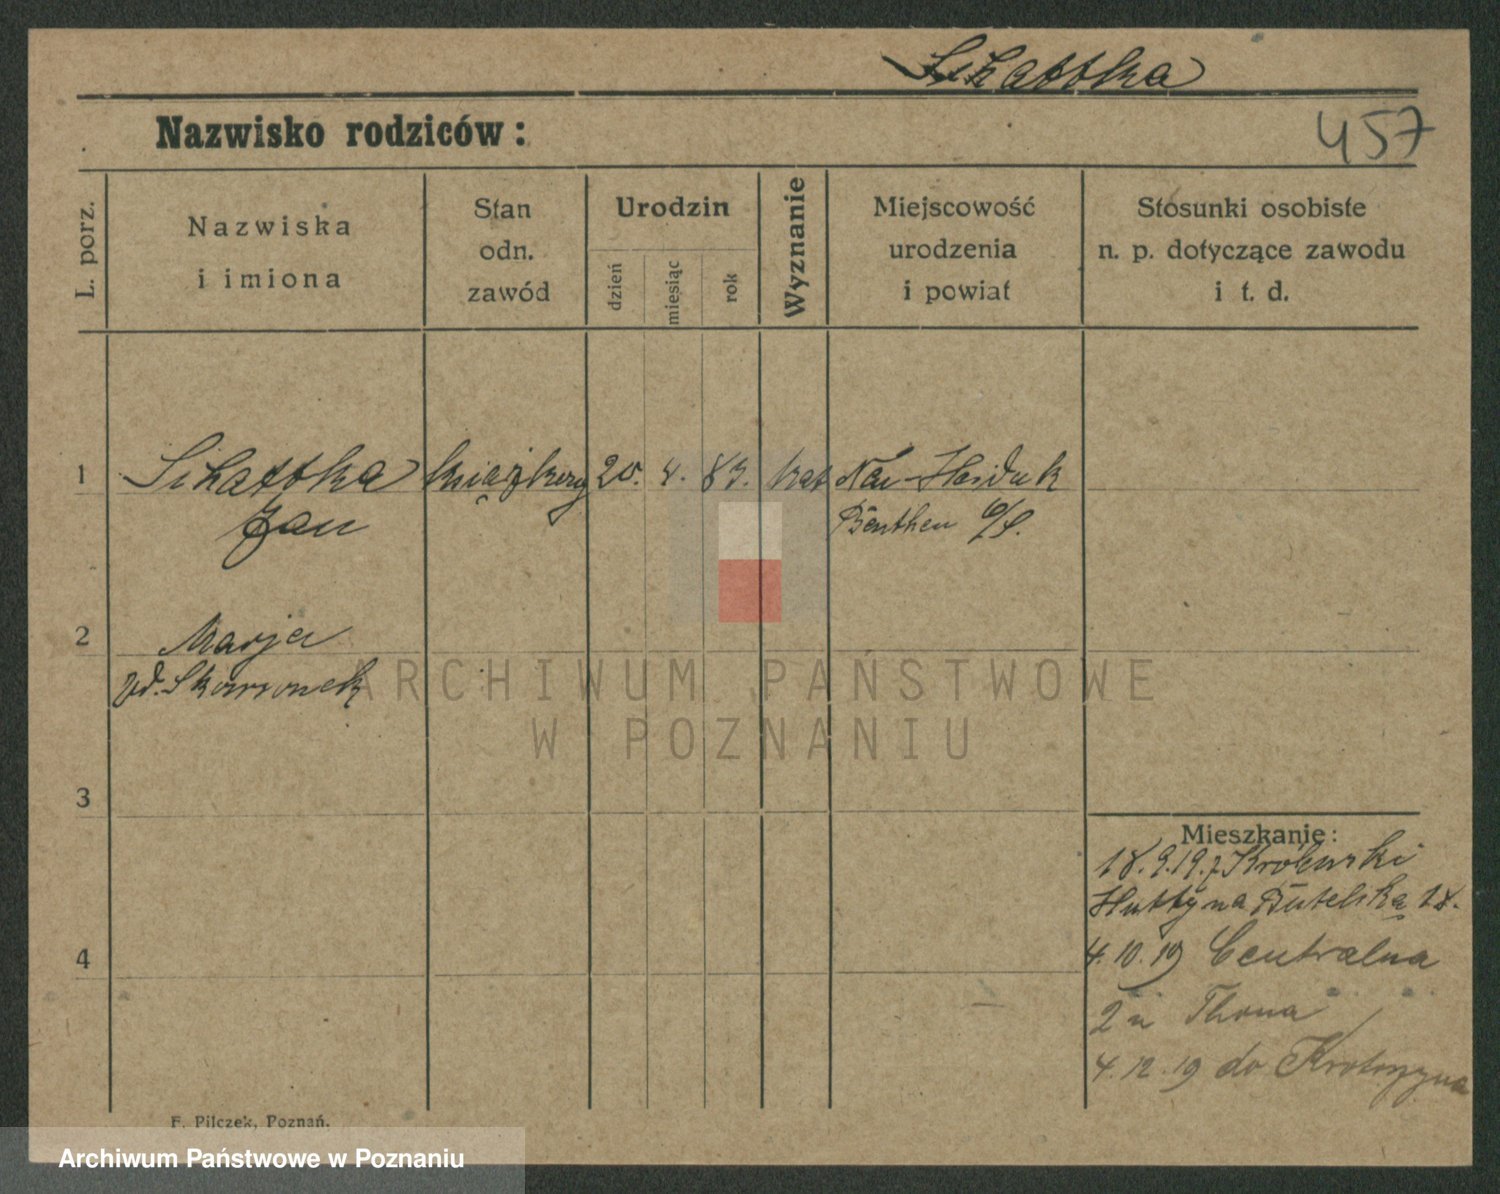 Sikattka
Nazwisko rodziców:
457
L. porz.
Nazwiska
i imiona
Stan
odn.
zawód
Urodzin
dzień
miesiąc
rok
Wyznanie
Miejscowość
urodzenia
i powiat
Stosunki osobiste
n. p. dotyczące zawodu
i t. d.
1 Sikattka 20. 83. kat
Jan Beuthen O/S.
2 Marja
3
4
Mieszkanie:
18.9.19. z
na 18.
4.10.19 Centralna
2 u Thoma
4.12.19 do Krotoszyna
F. Pilczek, Poznań.
ARCHIWUM PAŃSTWOWE
W POZNANIU
Archiwum Państwowe w Poznaniu